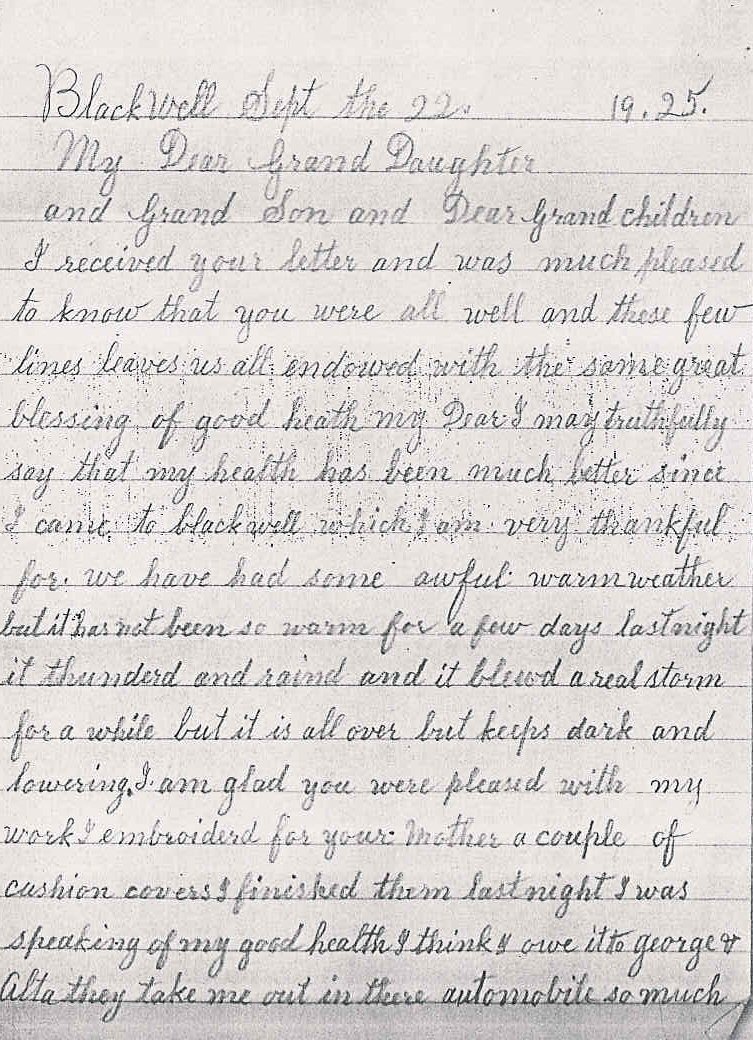 Blackwell Sept the 22. 19.25.
My Dear Grand Daughter
and Grand Son and Dear Grand children
I received your letter and was much pleased
to know that you were all well and these few
lines leaves us all endowed with the same great
blessing of good heath my Dear I may truthfully
say that my health has been much better since
I came to blackwell which I am very thankful
for. we have had some awful warm weather
but it has not been so warm for a few days last night
it thunderd and raind and it blewd a real storm
for a while but it is all over but keeps dark and
lowering. I am glad you were pleased with my
work I embroiderd for your Mother a couple of
cushion covers I finished them last night I was
speaking of my good health I think I owe it to george &
Alta they take me out in there automobile so much